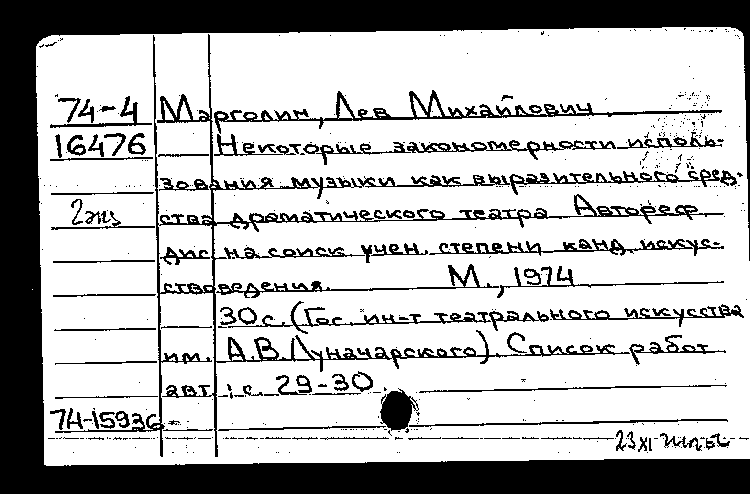 74-4 Марголин, Лев Михайлович.
16476 Некоторые закономерности исполь-
зования музыки как выразительного сред-
2 экз ства драматического театра Автореф.
дис. на соиск. учен. степени канд. искус-
ствоведения. М., 1974
30 с. (Гос. ин-т театрального искусства
им. А.В. Луначарского). Список работ
авт.: с. 29-30.
74-15936
23 XI